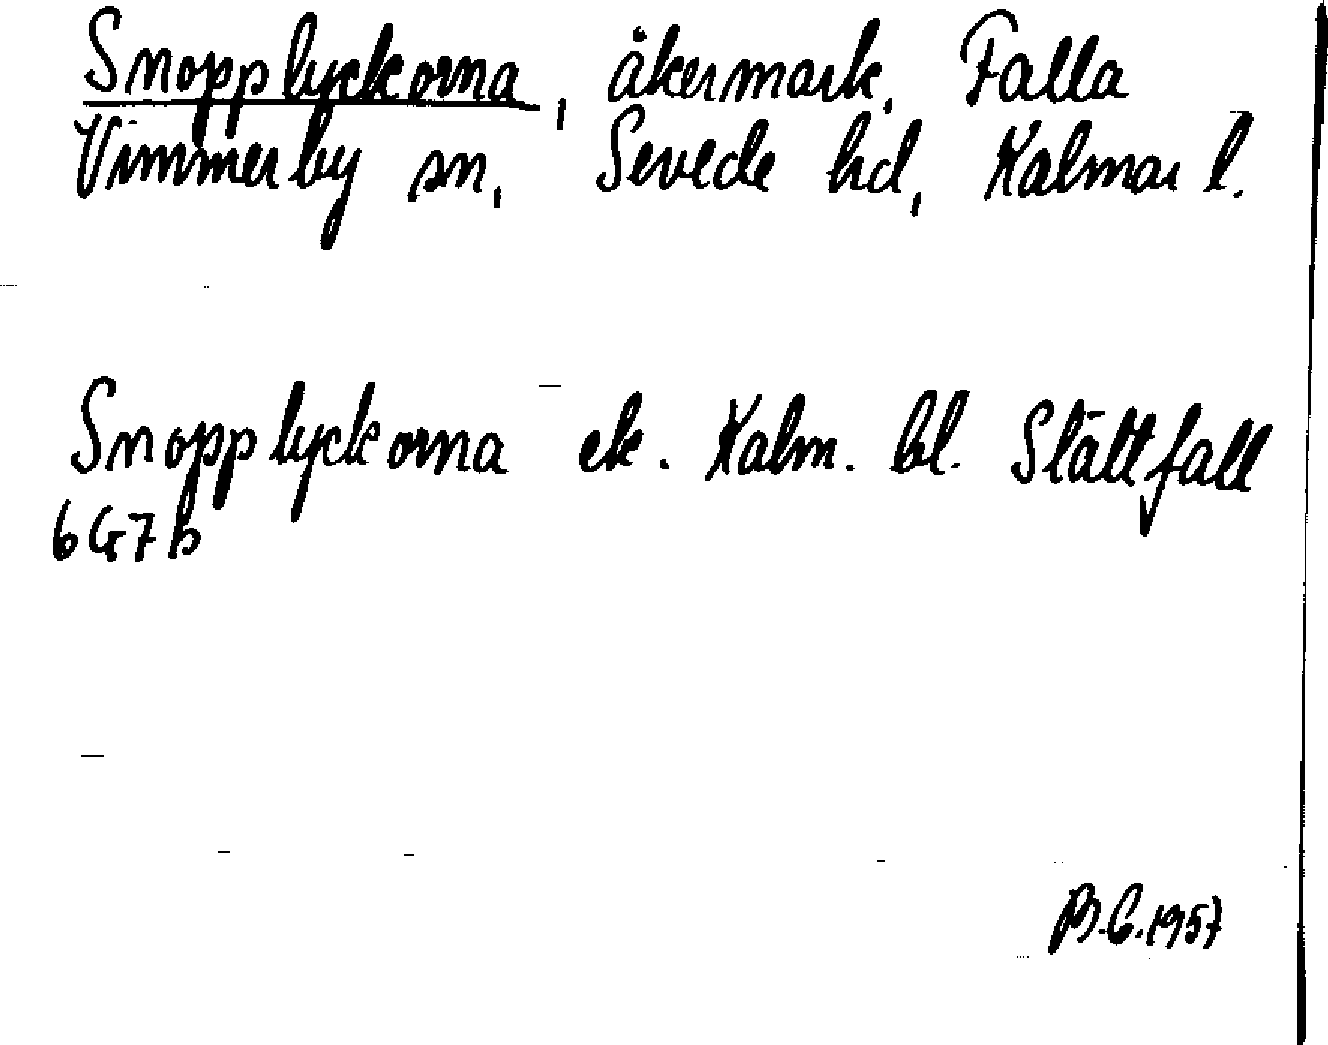 Snopplyckorna, åkermark, Falla
Vimmerby sn, Sevede hd, Kalmar l.
Snopplyckorna ek. Kalm. bl. Slättfall
6G7b
B.C.1957